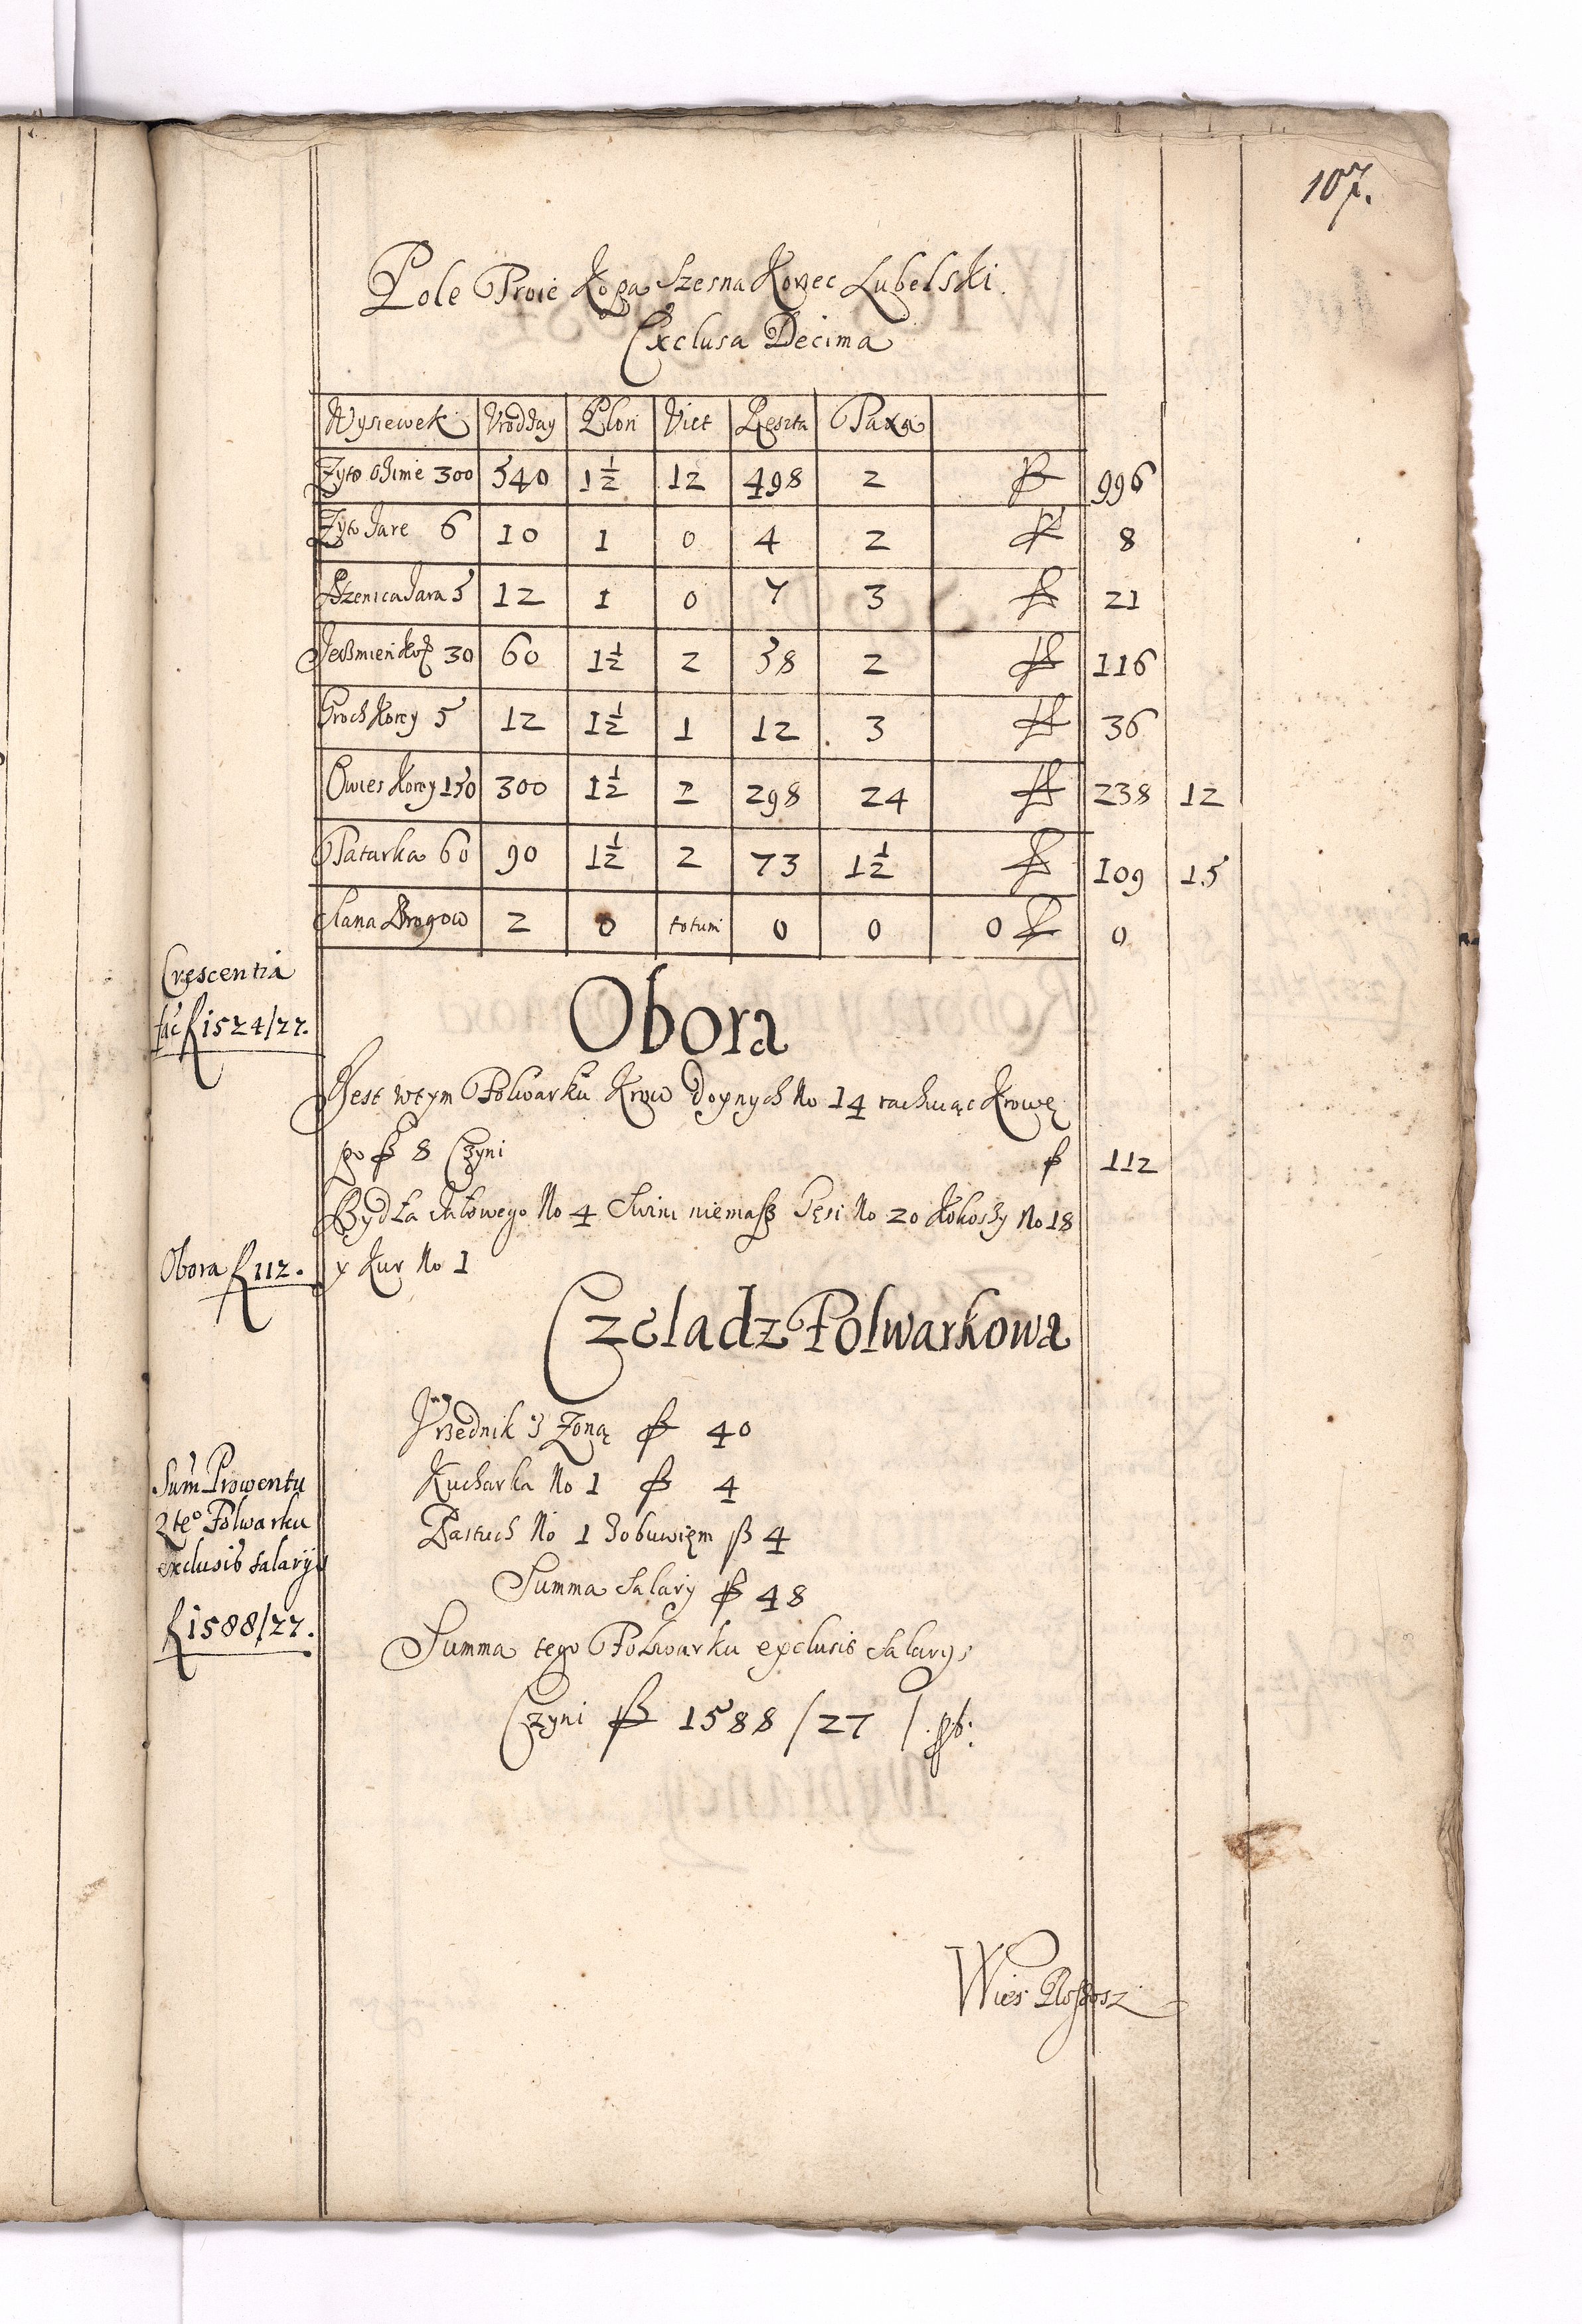 107.
Pole Troie Kopa Szesna Korzec Lubelski.
Exclusa Decima
Wysiewek Vrodzay Plon Vict Reszta Taxa
Zyto Ozime 300 540 1½ 12 498 2 ƒ 996
Zyto Jare 6 10 1 0 4 2 ƒ 8
Pszenica Jara 5 12 1 0 7 3 ƒ 21
Jeßmień Kor 30 60 1½ 2 58 2 ƒ 116
Groch Korcy 5 12 1½ 1 12 3 ƒ 36
Owies Korcy 150 300 1½ 2 298 24 ƒ 238 12
Tatarka 60 90 1½ 2 73 1½ ƒ 109 15
Siana Brogow 2 0 totum 0 0 0 ƒ 0
Crescentia
fac ƒ 1524/27.
Obora
Jest wtym Folwarku Krow doynych No 14 rachuiąc Krowę
po ƒ 8 Czyni ƒ 112
Bydła Jałowego No 4 Swini niemaß Gęsi No 20 Kokoszy No 18
y Kur No 1
Obora ƒ 112.
Czeladz Folwarkowa
Vrzednik z Zoną ƒ 40
Kucharka No 1 ƒ 4
Pastuch No 1 zobuwięm ƒ 4
Summa Salary ƒ 48
Sum Prowentu
z te° Folwarku
exclusis salarys
ƒ 1588/27.
Summa tego Folwarku exclusis Salarys
Czyni ƒ 1588 / 27 /
Wies Rossosz